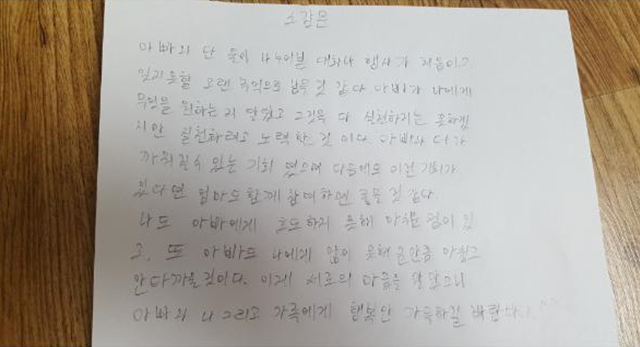 소감문
아빠와 단 둘이 나누어본 대화나 행사가 처음이고
잊지못할 오랜 추억으로 남을 것 같다 아빠가 나에게
무엇을 원하는 지 알았고 그것을 다 실천하지는 못하겠
지만 실천하려고 노력할 것 이다. 아빠와 더 가
까워질 수 있는 기회 였으며 다음에도 이런 기회가
있다면 엄마도 함께 참여하면 좋을 것 같다.
나도 아빠에게 효도하지 못해 아쉬운 점이 있
고, 또 아빠도 나에게 많이 못해 준만큼 아쉽고
안타까울 것이다. 이제 서로의 마음을 알았으니
아빠와 나 그리고 가족에게 행복만 가득하길 바란다 ^^